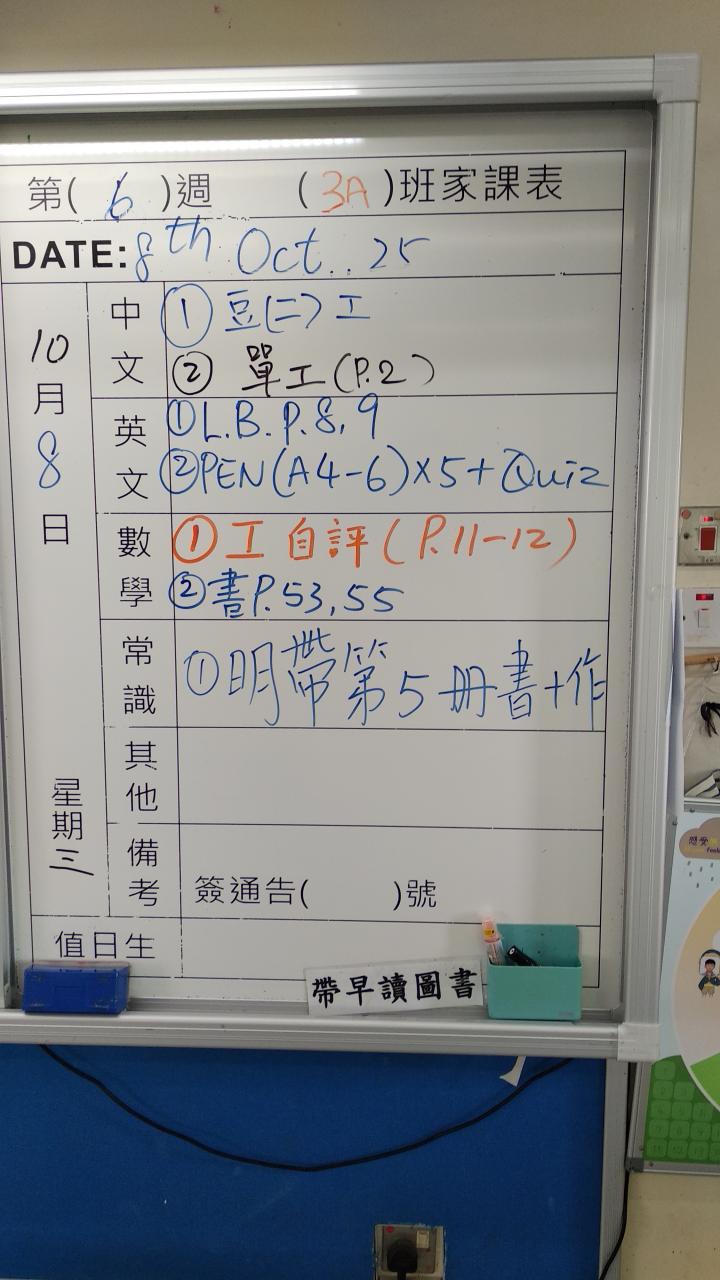 第( 6 )週 ( 3A )班家課表
DATE: 8th Oct.. 25
10月8日 星期三
中文
① 豆(二)工
② 單工(P.2)
英文
① L.B. P.8, 9
② PEN(A4-6)×5+Quiz
數學
① 工自評(P.11-12)
② 書P.53,55
常識
① 明帶第5冊書+作
其他
備考
簽通告( )號
值日生
帶早讀圖書
感受